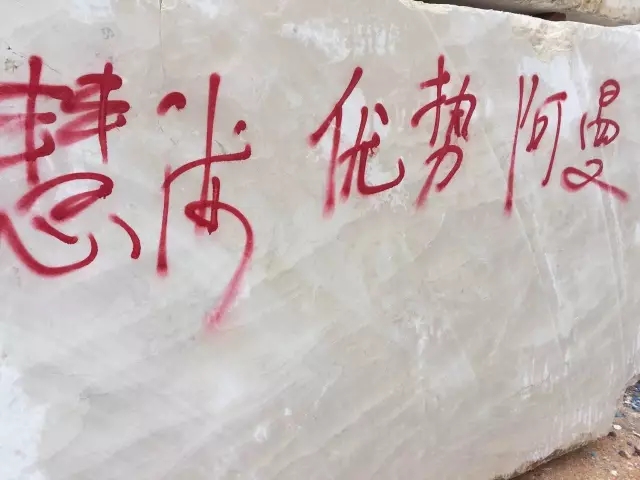 慧 优势 阿曼